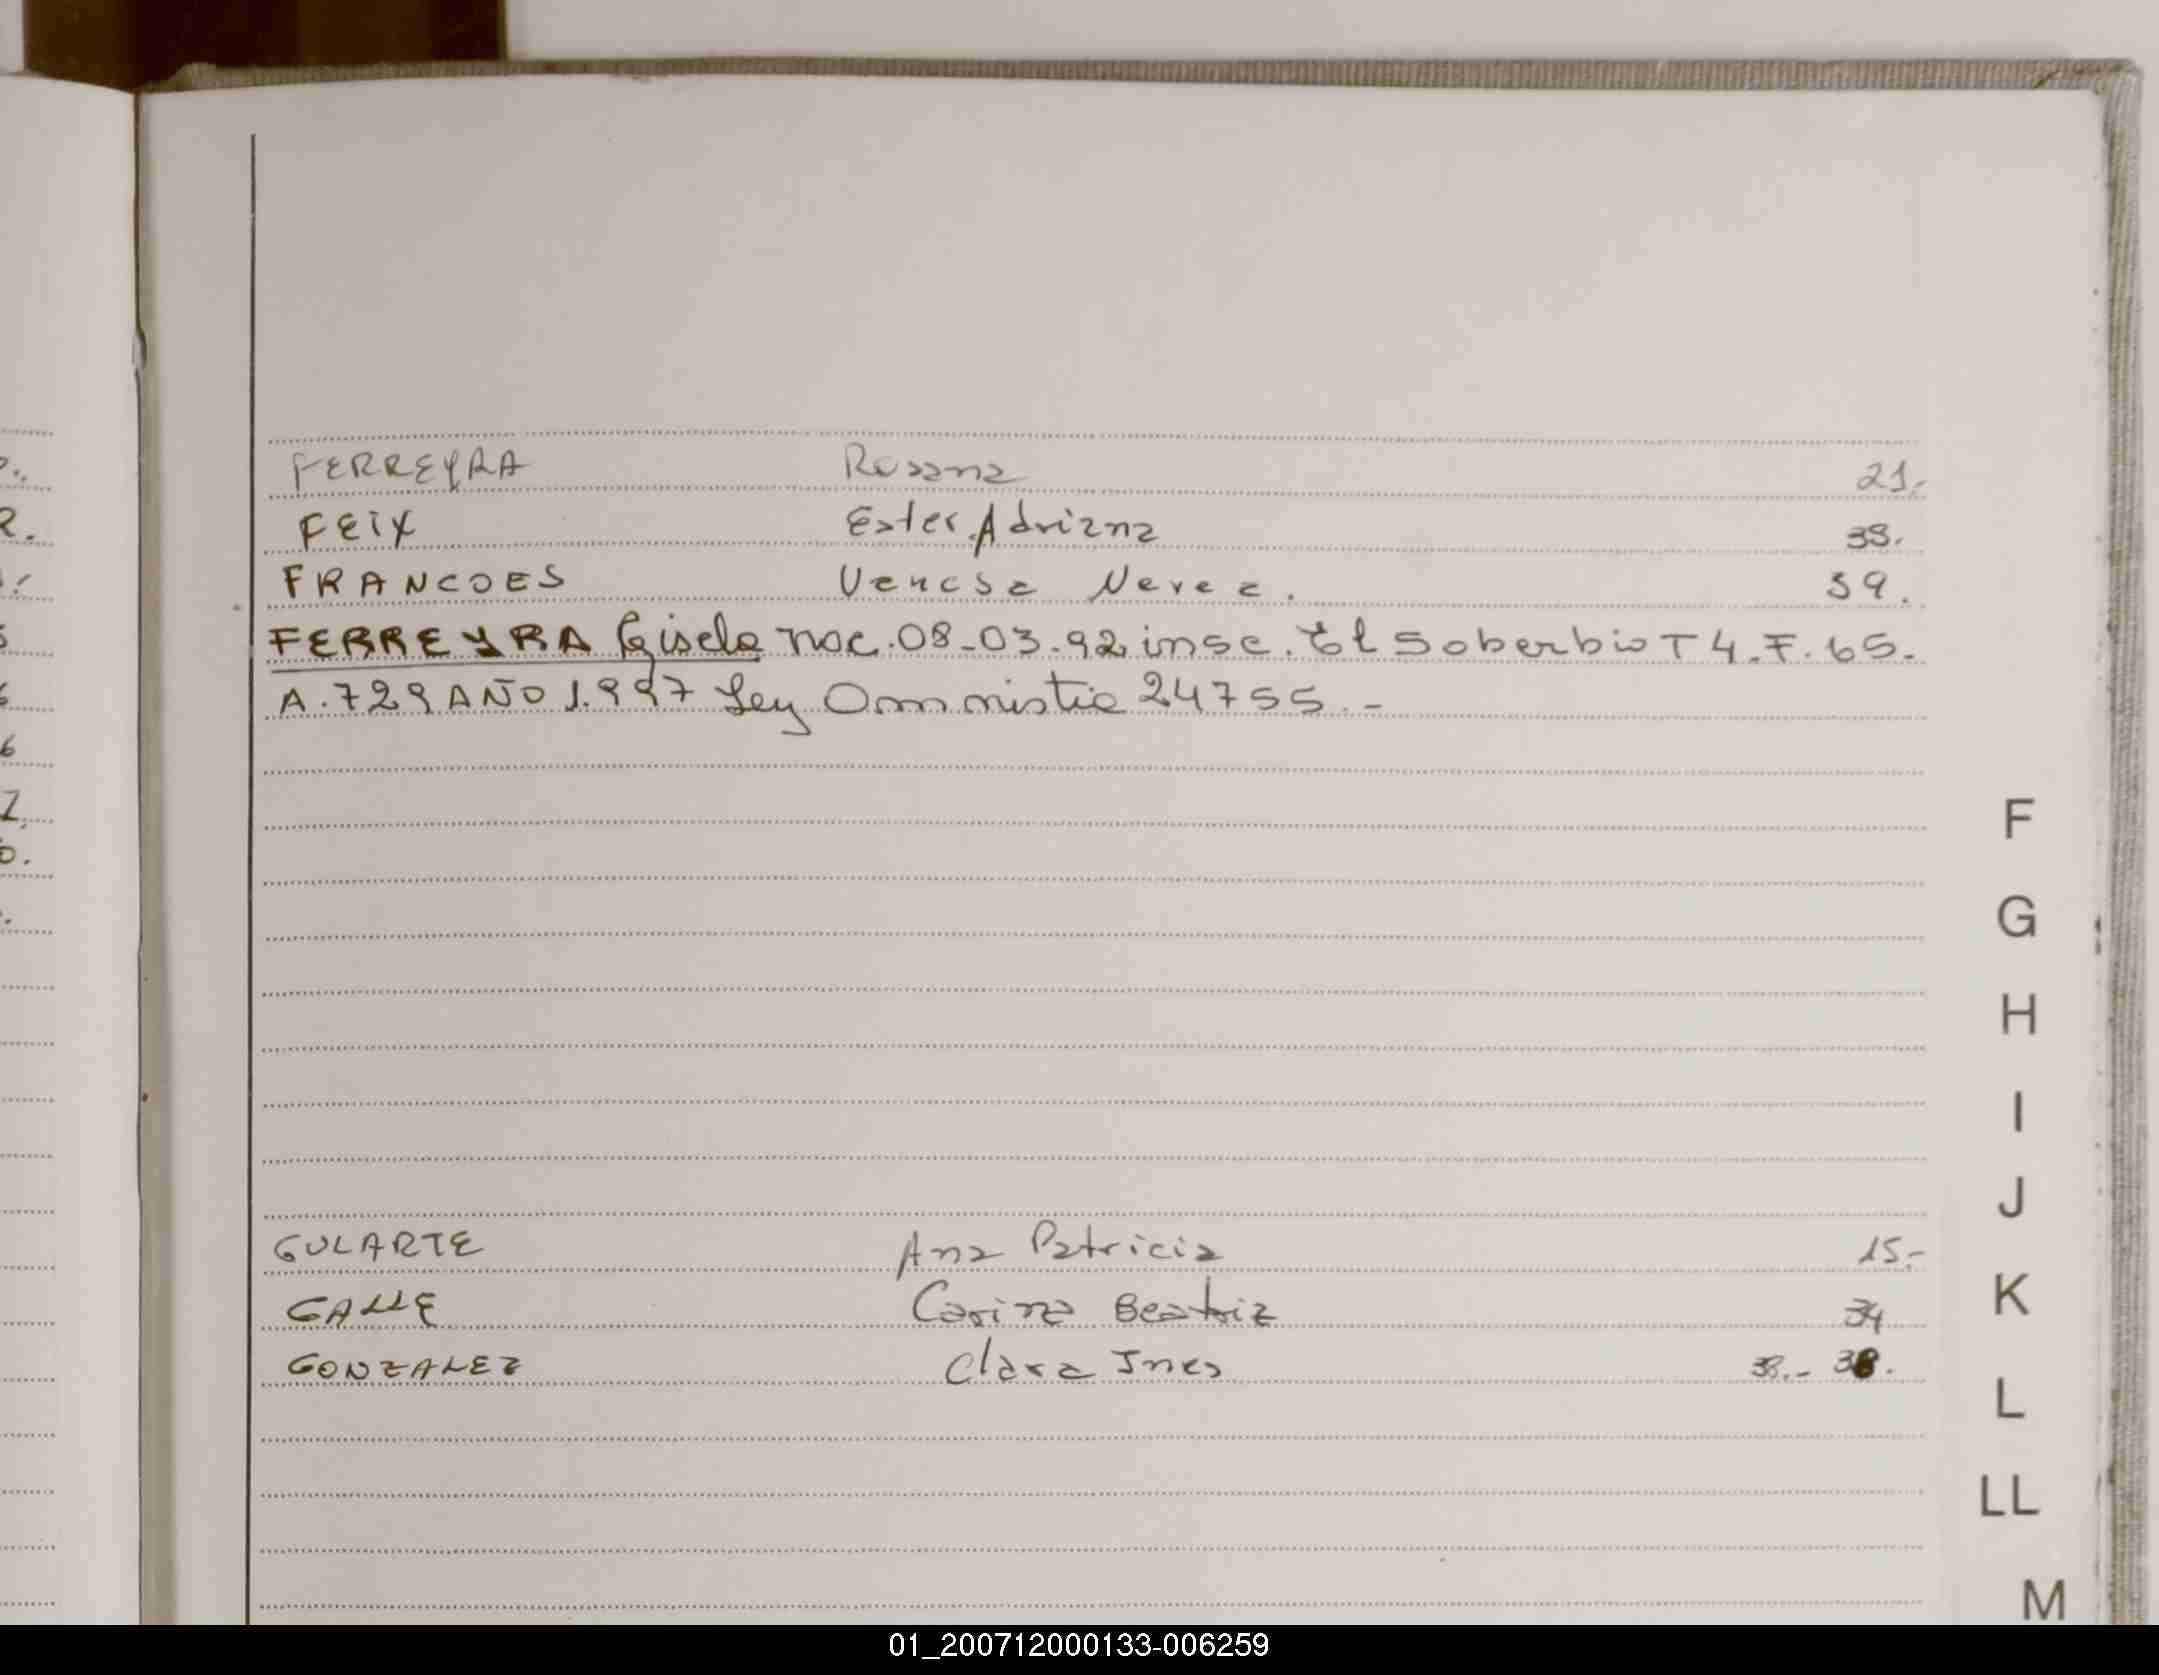 FERREYRA Rosana 21.-
FEIX Ester Adriana 38.
FRANCOES Vanesa Nerea. 39.
FERREYRA Gisela nac. 08-03-92 insc. El Soberbio T 4. F. 65.
A. 729 AÑO 1.997 Ley Omnistia 24755.-
F
G
H
I
J
GULARTE Ana Patricia 15.-
K
GALLE Carina Beatriz 34
GONZALEZ Clara Ines 38.- 38.
L
LL
M
01_200712000133-006259